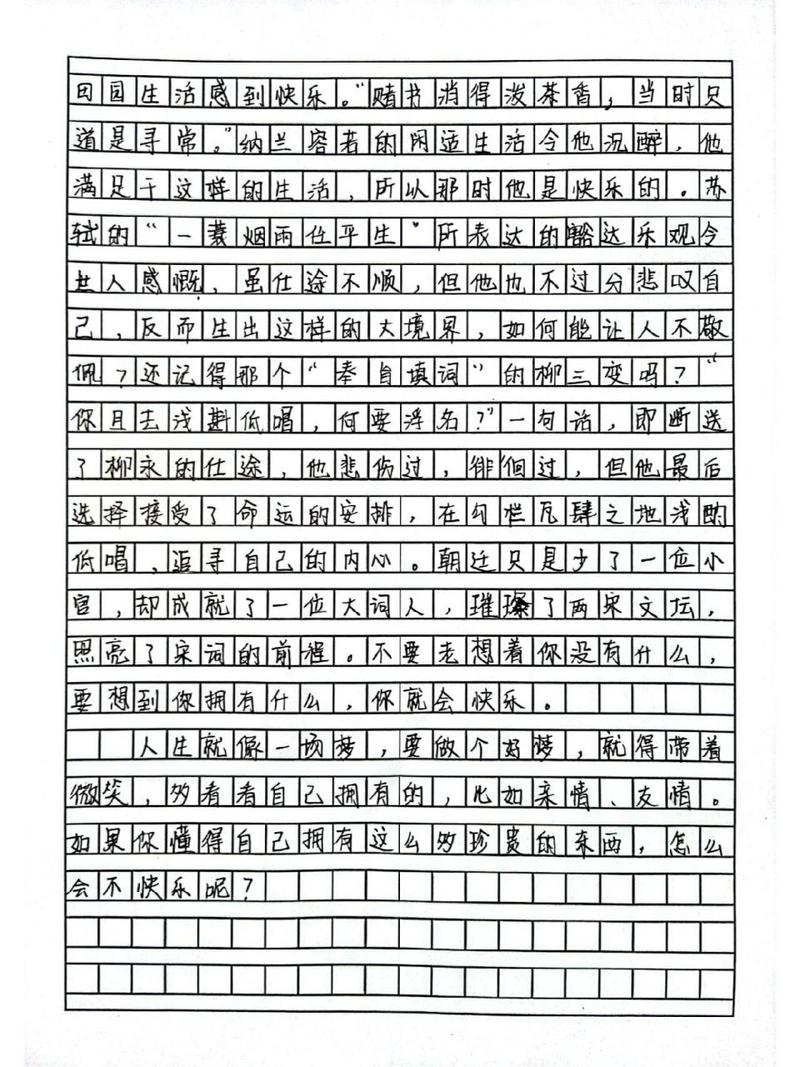 田园生活感到快乐。“赌书消得泼茶香，当时只
道是寻常。”纳兰容若的闲适生活令他沉醉，他
满足于这样的生活，所以那时他是快乐的。苏
轼的“一蓑烟雨任平生”所表达的豁达乐观令
世人感慨，虽仕途不顺，但他也不过分悲叹自
己，反而生出这样的大境界，如何能让人不敬
佩？还记得那个“奉旨填词”的柳三变吗？“
你且去浅斟低唱，何要浮名？”一句话，即断送
了柳永的仕途，他悲伤过，徘徊过，但他最后
选择接受了命运的安排，在勾栏瓦肆之地浅酌
低唱，追寻自己的内心。朝廷只是少了一位小
官，却成就了一位大词人，璀璨了两宋文坛，
照亮了宋词的前程。不要老想着你没有什么，
要想到你拥有什么，你就会快乐。
人生就像一场梦，要做个好梦，就得带着
微笑，多看看自己拥有的，比如亲情、友情。
如果你懂得自己拥有这么多珍贵的东西，怎么
会不快乐呢？